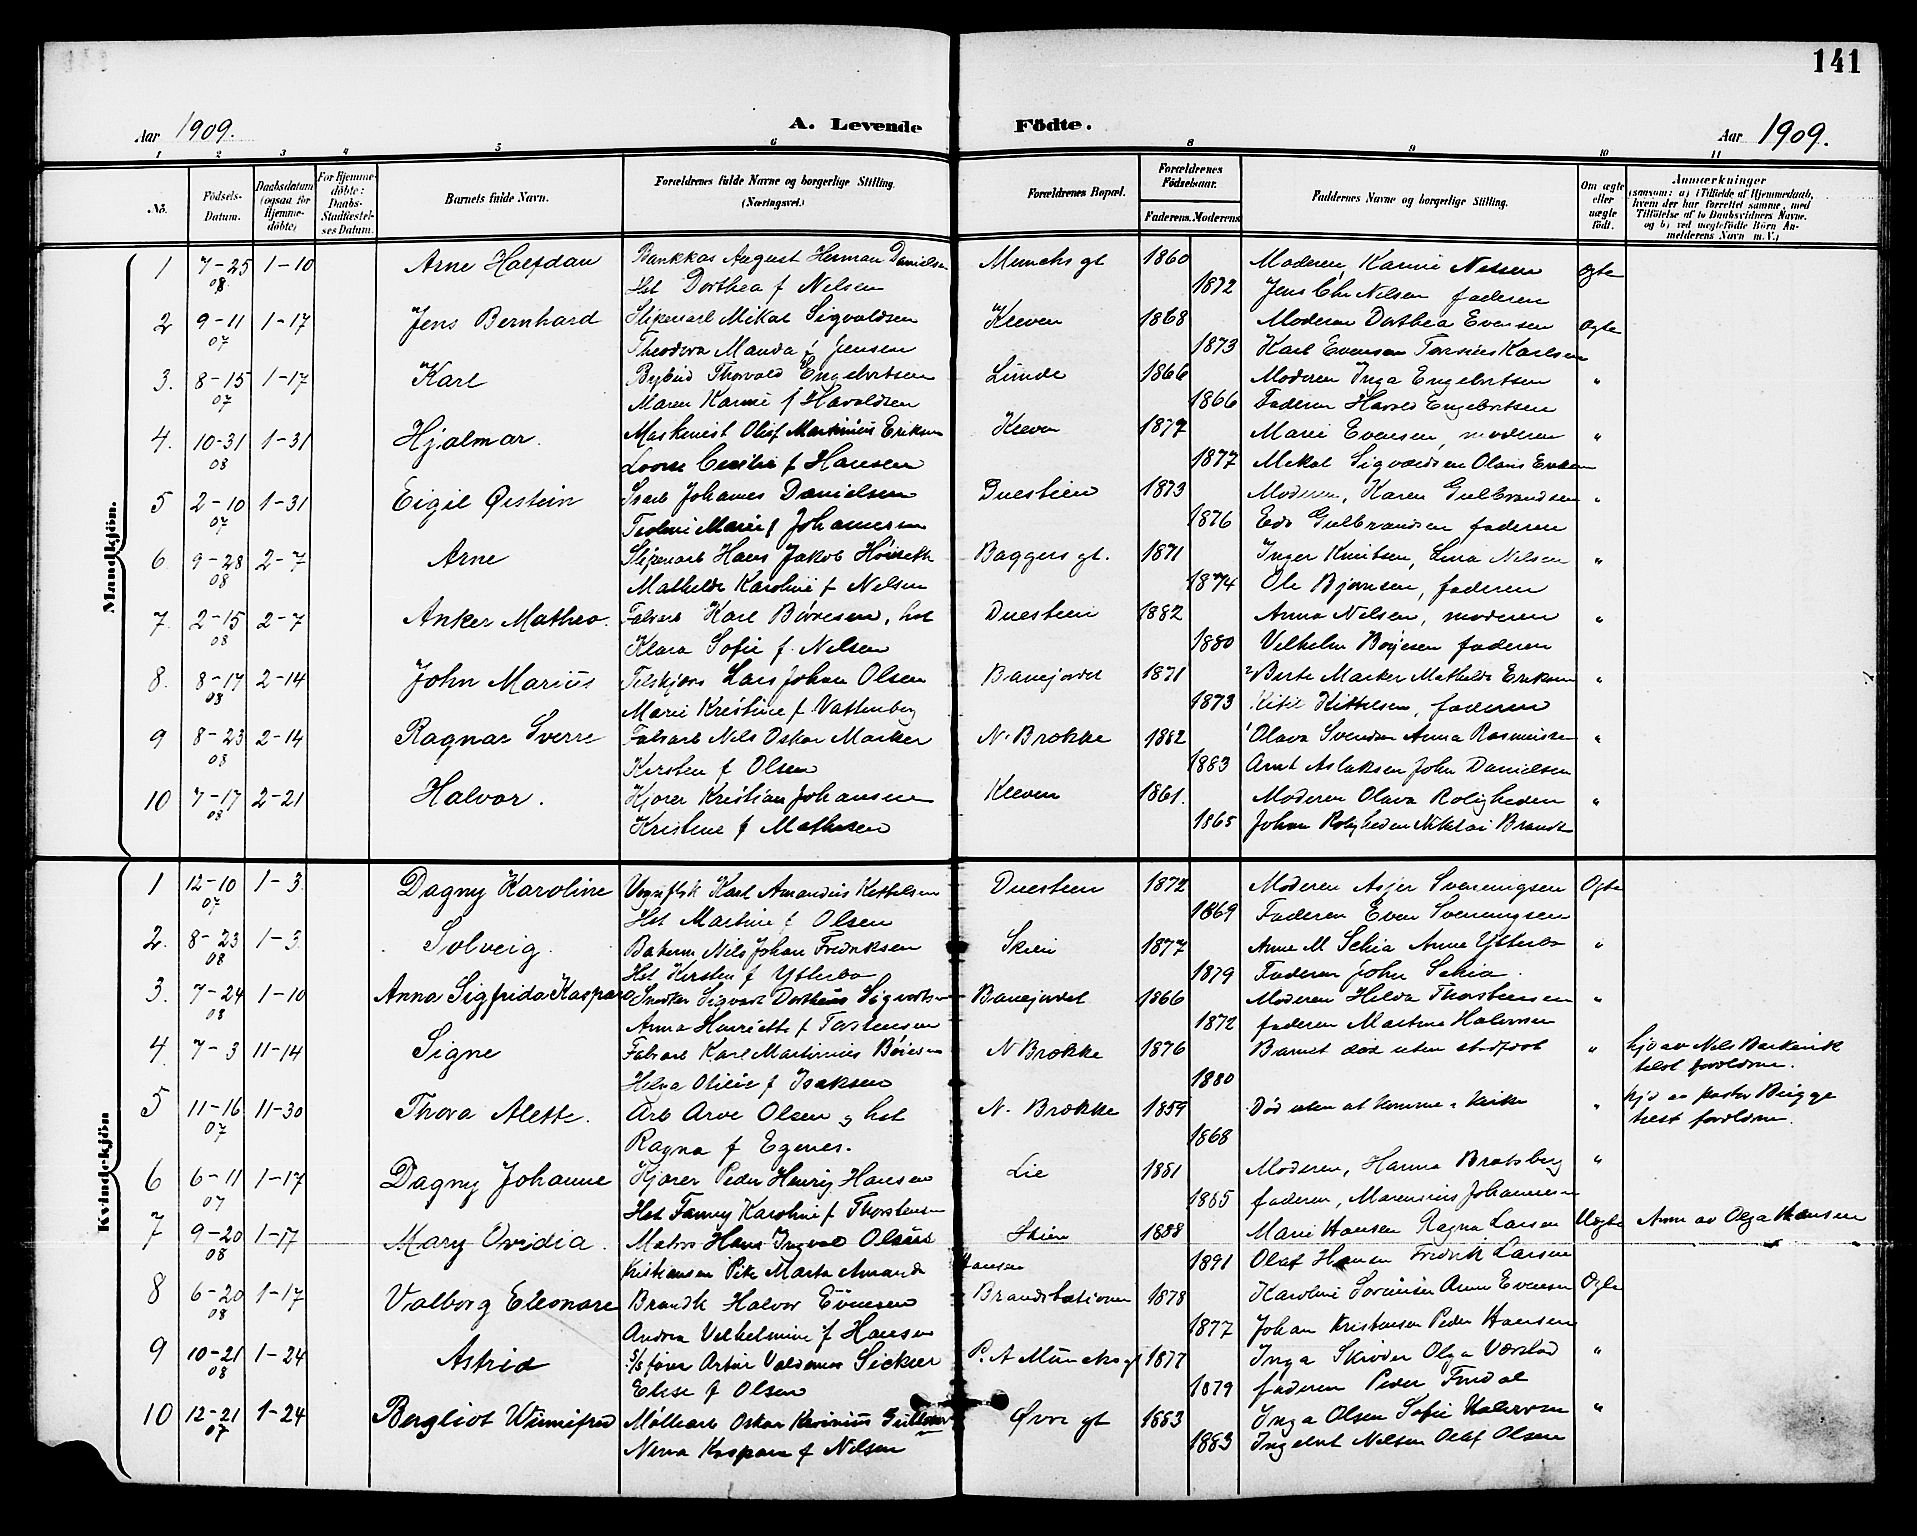 141
Aar 1909.
A. Levende Födte.
Aar 1909.
1 2 3 4 5 6 8 9 10 11
No.
Födsels-Datum.
Daabsdatum (ogsaa for Hjemmedöbte)
For Hjemmedöbte: Daabs-Stadfæstelses Datum.
Barnets fulde Navn.
Forældrenes fulde Navne og borgerlige Stilling. (Næringsvei.)
Forældrenes Bopæl.
Forældrenes Födselsaar.
Faderens. Moderens.
Faddernes Navne og borgerlige Stilling.
Om ægte eller uægte födt.
Anmærkninger (saasom: a) i Tilfælde af Hjemmedaab, hvem der har forrettet samme, med Tilföielse af to Daabsvidners Navne. og b) ved uægtefödte Börn Anmelderens Navn m. V.)
Mandkjön.
1 7-25 08 1-10 Arne Halfdan Bankkas August Herman Danielsen Munchs gt 1860 Moderen, Karine Nilsen Ægte
Hst Dorthea f Nilsen 1872 Jens Chr Nilsen faderen
2 9-11 07 1-17 Jens Bernhard Slipearb Mikal Sigvaldsen Kleven 1868 Moderen Dorthea Evensen Ægte
Theodora Manda f Jensen 1873 Karl Evensen Torsius Karlsen
3. 8-15 07 1-17 Karl Bybud Thorvald Engebretsen Lunde 1866 Moderen Inga Engebretsen "
Maren Karine f Haraldsen 1866 Faderen Harald Engebretsen
4. 10-31 08 1-31 Hjalmar. Maskinist Olaf Martinius Eriksen Kleven 1877 Marie Evensen, moderen "
Lovise Cecilia f Hansen 1877 Mikal Sigvaldsen Olaus Eriksen
5 2-10 07 1-31 Eigil Øistein Johannes Danielsen Duestien 1873 Moderen, Karen Gulbrandsen "
Marie f Johannesen 1876 Edv Gulbrandsen faderen
6. 9-28 08 2-7 Arne Slipearb Hans Jakob Baggers gt. 1871 Inger Knutsen, Lina Nilsen "
Mathilde Karoline f Nilsen 1874 Ole Bjørnsen, faderen
7. 2-15 08 2-7 Anker Matheo. Fabarb Karl Børresen, hst Duestien 1882 Anna Nilsen, moderen "
Klara Sofie f. Nilsen 1880 Vilhelm Børjesen faderen
8. 8-17 08 2-14 John Marius Lars Johan Olsen Banejordet 1871 Berte Marker Mathilde Eriksen "
Marie Kristine f Vattenberg 1873 Kitil Kittilsen, faderen
9 8-23 08 2-14 Ragnar Sverre Fabarb Nils Oskar Marker N. Brokke 1882 Olava Svendsen Anna Rasmussen "
Kirsten f Olsen 1883 Arnt Aslaksen John Danielsen
10 7-17 08 2-21 Halvor. Kjører Kristian Johansen Kleven 1861. Moderen Olava Roligheden "
Kristine f Mathisen 1865 Johan Roligheden Niklai Brandt
Kvindekjön
1 12-10 07 1-3 Dagny Karoline Karl Amandus Kittilsen Duestien 1872 Moderen Asjer Sveningsen Ægte
Hst Martine f Olsen 1869 Faderen Even Sveningsen
2. 8-23 08 1-3 Solveig. Nils Johan Fredriksen Skien 1877 Anne M Schia Anne Ytterbø "
Hst Kirsten f Ytterbø 1879 Faderen John Schia.
3. 7-24 08 1-10 Anna Sigfrida Kaspara Snedker Sigvart Dorthius Sigvartsen Banejordet 1866 Moderen Hilda Thorstensen "
Anna Henriette f Torstensen 1872 faderen Martine Halvorsen
4. 7-3 11-14 Signe Fabarb Karl Martinius Børresen N Brokke 1876 Barnet død uten " hjd av Nils Backerik
Helga Otilie f Isaksen 1880 tilst forældrene.
5 11-16 07 11-30 Thora Alette. Arb Arve Olsen og hst N. Brokke 1859 Død uten at komme i kirke " hjd av pastor Bugge
Ragna f Egenes. 1868 tilst forældrene.
6 6-11 07 1-17 Dagny Johanne Kjører Peder Henrig Hansen Lie 1881 Moderen, Hanna Bratsberg "
Hst Fanny Karoline f Thorstensen 1885 faderen, Marensius Johannesen
7 9-20 08 1-17 Mary Ovidia. Matros Hans Ingval Olaus Skien 1888 Marie Hansen Ragna Larsen Uægte Anm av Olga Hansen
Kristiansen Pike Marta Amanda Hansen 1891 Olaf Hansen Fredrik Larsen
8 6-20 08 1-17 Valborg Eleonare Brandk Halvor Evensen Brandstationen 1878 Karoline Sørensen Anne Evensen Ægte
Andrea Vilhelmine f Hansen 1877 Johan Kristensen Peder Hansen
9 10-21 08 1-24 Astrid Artur Valdemar P. A Munchs gt 1877 Inga Skrøder Olga Værstad "
Elise f Olsen 1879 faderen Peder Findal
10 12-21 07 1-24 Bergliot Winnifred Møllearb Oskar Øvre gt 1883 Inga Olsen Sofie Halvorsen "
Kaspara f Nilsen 1883 Ingebret Nilsen Olaf Olsen